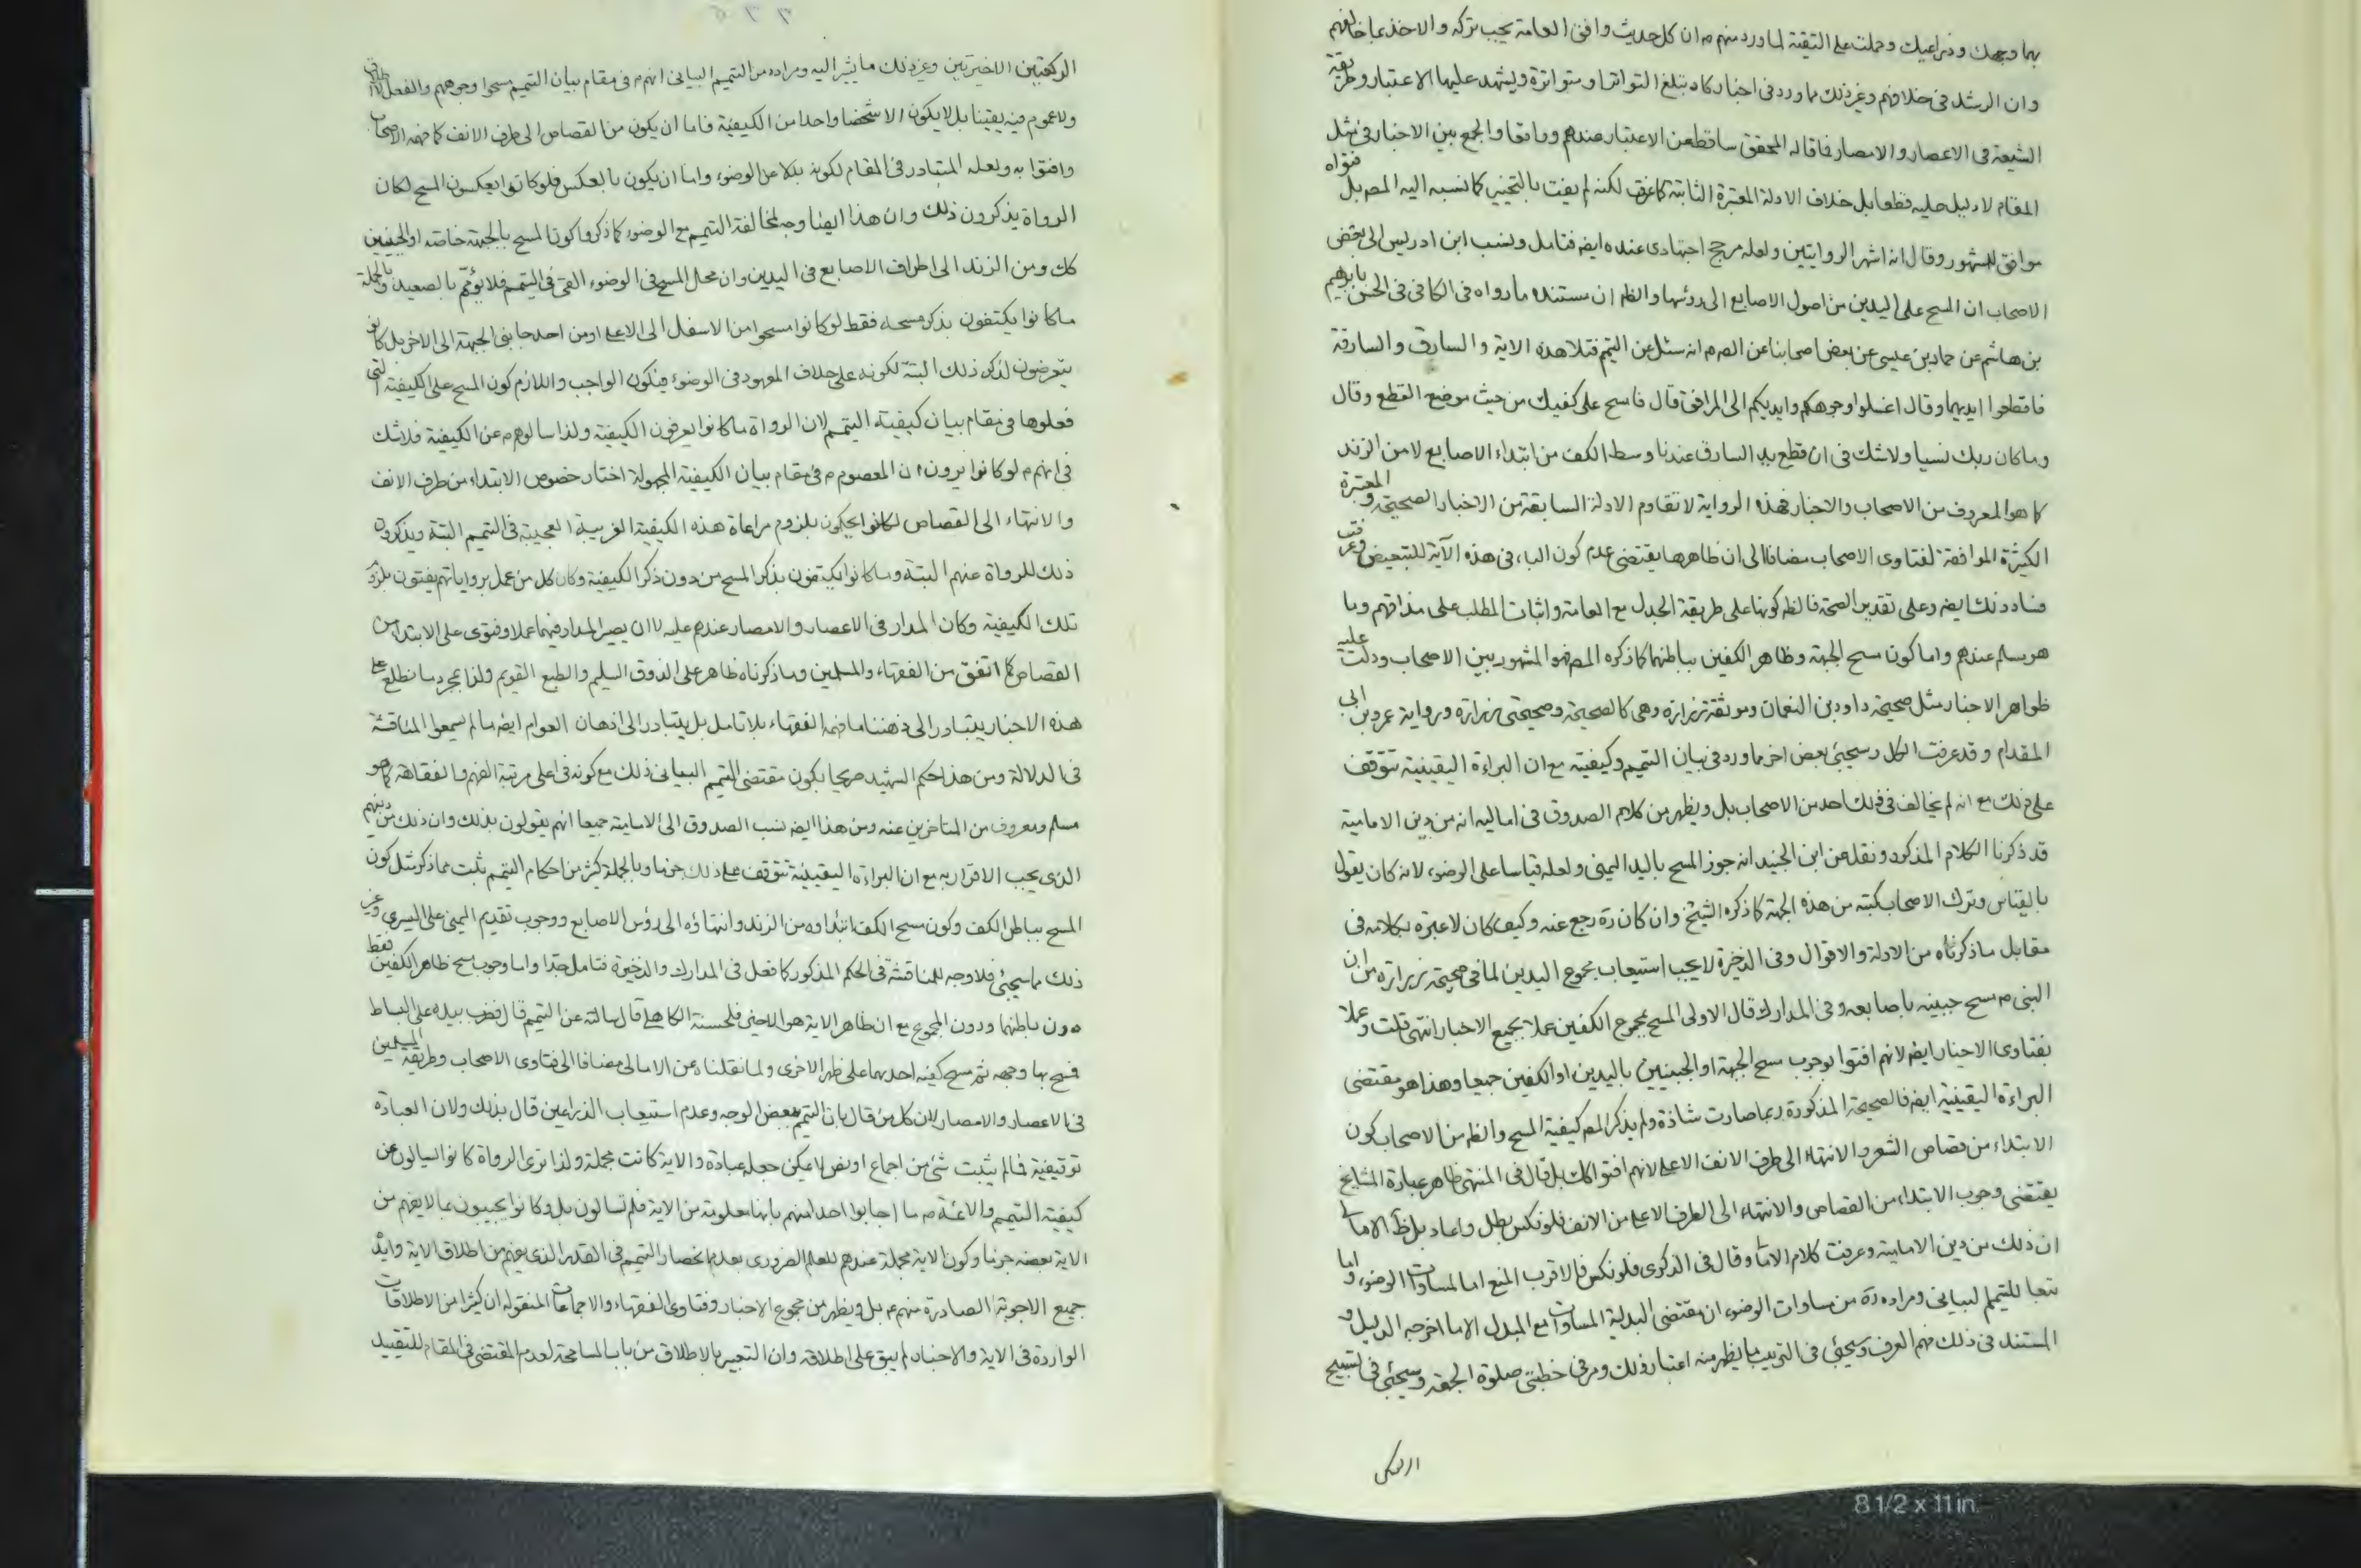 بهما وجهك وذراعيك وحملت على التقية لما ورد منهم ع ان كل حديث وافق العامة يجب تركه والاخذ بما خالفهم
وان الرشد فى خلافهم وغير ذلك مما ورد فى اخبار كاد تبلغ التواتر او متواترة ويشهد عليها الاعتبار وطريقة
الشيعة فى الاعصار والامصار فما قاله المحقق ساقط عن الاعتبار عندهم وفاقا والجمع بين الاخبار فى مثل
المقام لا دليل عليه قطعا بل خلاف الادلة المعتبرة الثابتة كما عرفت لكنه لم يفت بالتخيير كما نسبه اليه المصـ بل فتواه
موافق للمشهور وقال انه اشهر الروايتين ولعله مرجح اجتهادى عنده ايضـ فتامل ونسب ابن ادريس الى بعض
الاصحاب ان المسح على اليدين من اصول الاصابع الى رؤسها والظـ ان مستنده ما رواه فى الكافى فى الحسن بابرهيم
بن هاشم عن حماد بن عيسى عن بعض اصحابنا عن الصـ ع انه سئل عن التيمم فتلا هذه الاية والسارق والسارقة
فاقطعوا ايديهما وقال اغسلوا وجوهكم وايديكم الى المرافق قال فامسح على كفيك من حيث موضع القطع وقال
وما كان ربك نسيا ولا شك فى ان قطع يد السارق عندنا وسط الكف من ابتداء الاصابع لا من الزند
كما هو المعروف من الاصحاب والاخبار فهذه الرواية لا تقاوم الادلة السابقة من الاخبار الصحيحة والمعتبرة
الكثيرة الموافقة لفتاوى الاصحاب مضافا الى ان ظاهرها يقتضى عدم كون الباء فى هذه الآية للتبعيض وعرفت
فساد ذلك ايضـ وعلى تقدير الصحة فالظـ كونها على طريقة الجدل مع العامة واثبات المطلب على مذاقهم وما
هو مسلم عندهم واما كون مسح الجبهة وظاهر الكفين بباطنهما كما ذكره المصـ فهو المشهور بين الاصحاب ودلت عليه
ظواهر الاخبار مثل صحيحة داود بن النعمان وموثقة زرارة وهى كالصحيحة وصحيحتى زرارة ورواية عمرو بن ابى
المقدام وقد عرفت الكل وسيجئ بعض اخر مما ورد فى بيان التيمم وكيفيته مع ان البراءة اليقينية تتوقف
على ذلك مع انه لم يخالف فى ذلك احد من الاصحاب بل ويظهر من كلام الصدوق فى اماليه انه من دين الامامية
قد ذكرنا الكلام المذكور ونقل عن ابن الجنيد انه جوز المسح باليد اليمنى ولعله قياسا على الوضوء لانه كان يقول
بالقياس وترك الاصحاب كتبه من هذه الجهة كما ذكره الشيخ وان كان ره رجع عنه وكيف كان لا عبرة بكلامه فى
مقابل ما ذكرناه من الادلة والاقوال وفى الذخيرة لا يجب استيعاب مجموع اليدين لما فى صحيحة زرارة من ان
النبى ص مسح جبينيه باصابعه وفى المدارك قال الاولى المسح بمجموع الكفين عملا بجميع الاخبار انتهى قلت وعملا
بفتاوى الاخبار ايضـ لانهم افتوا بوجوب مسح الجبهة او الجبينين باليدين او الكفين جميعا وهذا هو مقتضى
البراءة اليقينية ايضـ فالصحيحة المذكورة ربما صارت شاذة ولم يذكر المصـ كيفية المسح والظـ من الاصحاب كون
الابتداء من قصاص الشعر والانتهاء الى طرف الانف الاعلى لانهم افتوا كك بل قال فى المنتهى ظاهر عبارة المشايخ
يقتضى وجوب الابتداء من القصاص والانتهاء الى الطرف الاعلى من الانف فلو نكس بطل واعاد بل ظـ الامالى
ان ذلك من دين الامامية وعرفت كلام الامالى وقال فى الذكرى فلو نكس فالاقرب المنع اما لمساوات الوضوء واما
تبعا للتيمم البيانى ومراده ره من مساوات الوضوء ان مقتضى البدلية المساوات مع المبدل الا ما اخرجه الدليل و
المستند فى ذلك فهم العرف وسيجئ فى الترتيب ما يظهر منه اعتبار ذلك ومر فى خطبتى صلوة الجمعة وسيجئ فى تسبيح
الركعتين الاخيرتين وغير ذلك ما يشير اليه ومراده من التيمم البيانى انهم ع فى مقام بيان التيمم مسحوا وجوههم والفعل
ولا عموم فيه يقينا بل لا يكون الا شخصا واحدا من الكيفية فاما ان يكون من القصاص الى طرف الانف كما فهمه الاصحاب
وافتوا به ولعله المتبادر فى المقام لكونه بدلا عن الوضوء واما ان يكون بالعكس فلو كانوا يعكسون المسح لكان
الرواة يذكرون ذلك وان هذا ايضا وجه لمخالفة التيمم مع الوضوء كما ذكروا كون المسح بالجبهة خاصة او الجبينين
كك ومن الزند الى اطراف الاصابع فى اليدين وان محل المسح فى الوضوء القى فى التيمم فلا يؤمّم بالصعيد وبالجملة
ما كانوا يكتفون بذكر مسحه فقط لو كانوا مسحوا من الاسفل الى الاعلى او من احد جانبى الجبهة الى الاخر بل كانوا
يتعرضون لذكر ذلك البتة لكونه على خلاف المعهود فى الوضوء فيكون الواجب واللازم كون المسح على الكيفية التى
فعلوها فى مقام بيان كيفية التيمم لان الرواة ما كانوا يعرفون الكيفية ولذا سالوهم ع عن الكيفية فلا شك
فى انهم ع لو كانوا يرون ان المعصوم ع فى مقام بيان الكيفية المجهولة اختار خصوص الابتداء من طرف الانف
والانتهاء الى القصاص لكانوا يحكون بلزوم مراعاة هذه الكيفية الغريبة العجيبة فى التيمم البتة ويذكرون
ذلك للرواة عنهم البتة وما كانوا يكتفون بذكر المسح من دون ذكر الكيفية وكان كل من عمل برواياتهم يفتون بلزوم
تلك الكيفية وكان المدار فى الاعصار والامصار عندهم عليه لا ان يصير المدار فيهما عملا وفتوى على الابتداء من
القصاص كما اتفق من الفقهاء والمسلمين وما ذكرناه ظاهر على الذوق السليم والطبع القويم ولذا بمجرد ما نطلع على
هذه الاخبار يتبادر الى ذهننا ما فهمه الفقهاء بلا تامل بل يتبادر الى اذهان العوام ايضـ ما لم يسمعوا المناقشة
فى الدلالة ومن هذا حكم الشهيد صريحا بكون مقتضى التيمم البيانى ذلك مع كونه فى اعلى مرتبة الفهم والفقاهة كما هو
مسلم ومعروف من المتاخرين عنه ومن هذا ايضـ نسب الصدوق الى الامامية جميعا انهم يقولون بذلك وان ذلك من دينهم
الذى يجب الاقرار به مع ان البراءة اليقينية تتوقف على ذلك جزما وبالجملة كثير من احكام التيمم ثبت مما ذكر مثل كون
المسح بباطن الكف وكون مسح الكف ابتداؤه من الزند وانتهاؤه الى رؤس الاصابع ووجوب تقديم اليمنى على اليسرى وغير
ذلك مما سيجئ فلا وجه للمناقشة فى الحكم المذكور كما فعل فى المدارك والذخيرة فتامل جدا واما وجوب مسح ظاهر الكفين فقط
دون باطنهما ودون المجموع مع ان ظاهر الاية هو الاخير فلحسنة الكاهلى قال سالته عن التيمم قال فضرب بيده على البساط
فمسح بها وجهه ثم مسح كفيه احديهما على ظهر الاخرى ولما نقلناه عن الامالى مضافا الى فتاوى الاصحاب وطريقة المسلمين
فى الاعصار والامصار لان كل من قال بان التيمم ببعض الوجه وعدم استيعاب الذراعين قال بذلك ولان العبادة
توقيفية فما لم يثبت شئ من اجماع او نص لا يمكن جعله عبادة والاية كانت مجملة ولذا ترى الرواة كانوا يسالون عن
كيفية التيمم والائمة ع ما اجابوا احدا منهم بانها معلومة من الاية فلم تسالون بل وكانوا يجيبون بما لا يفهم من
الاية بعضه جزما وكون الاية مجملة عندهم للعلم الضرورى بعدم انحصار التيمم فى القدر الذى يفهم من اطلاق الاية
جميع الاجوبة الصادرة منهم ع بل ويظهر من مجموع الاخبار وفتاوى الفقهاء والاجماعات المنقولة ان كثيرا من الاطلاقات
الواردة فى الاية والاخبار لم يبق على اطلاقه وان التعبير بالاطلاق من باب المسامحة لعدم المقتضى فى المقام للتقييد
8 1/2 x 11 in.